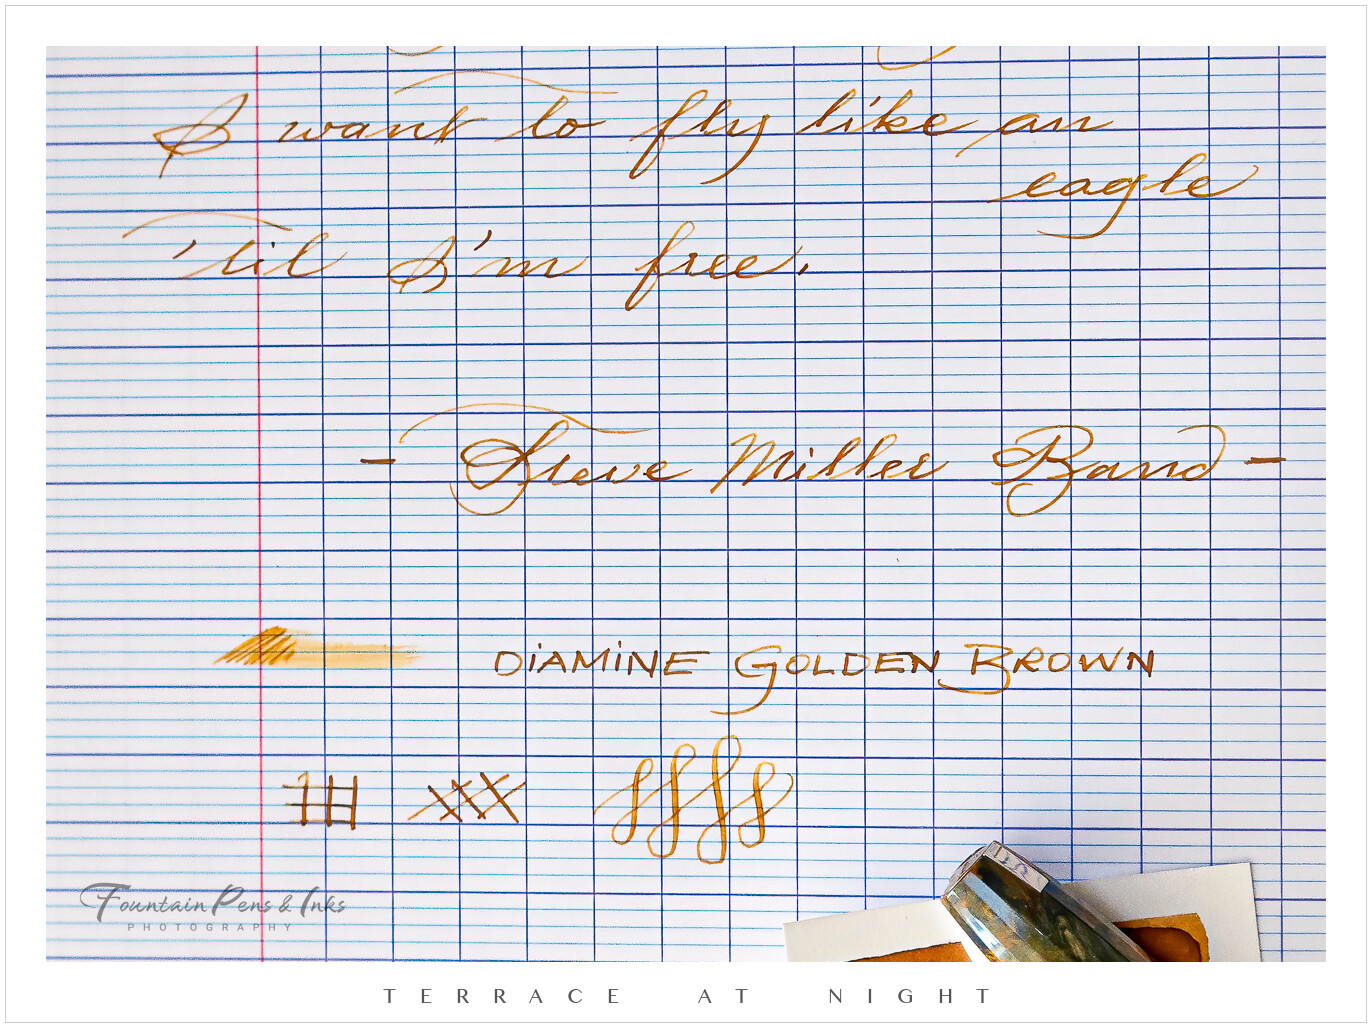 I want to fly like an
eagle
'til I'm free.
- Steve Miller Band -
DiAMiNE GOLDEN BROWN
Fountain Pens & Inks
PHOTOGRAPHY
TERRACE AT NIGHT